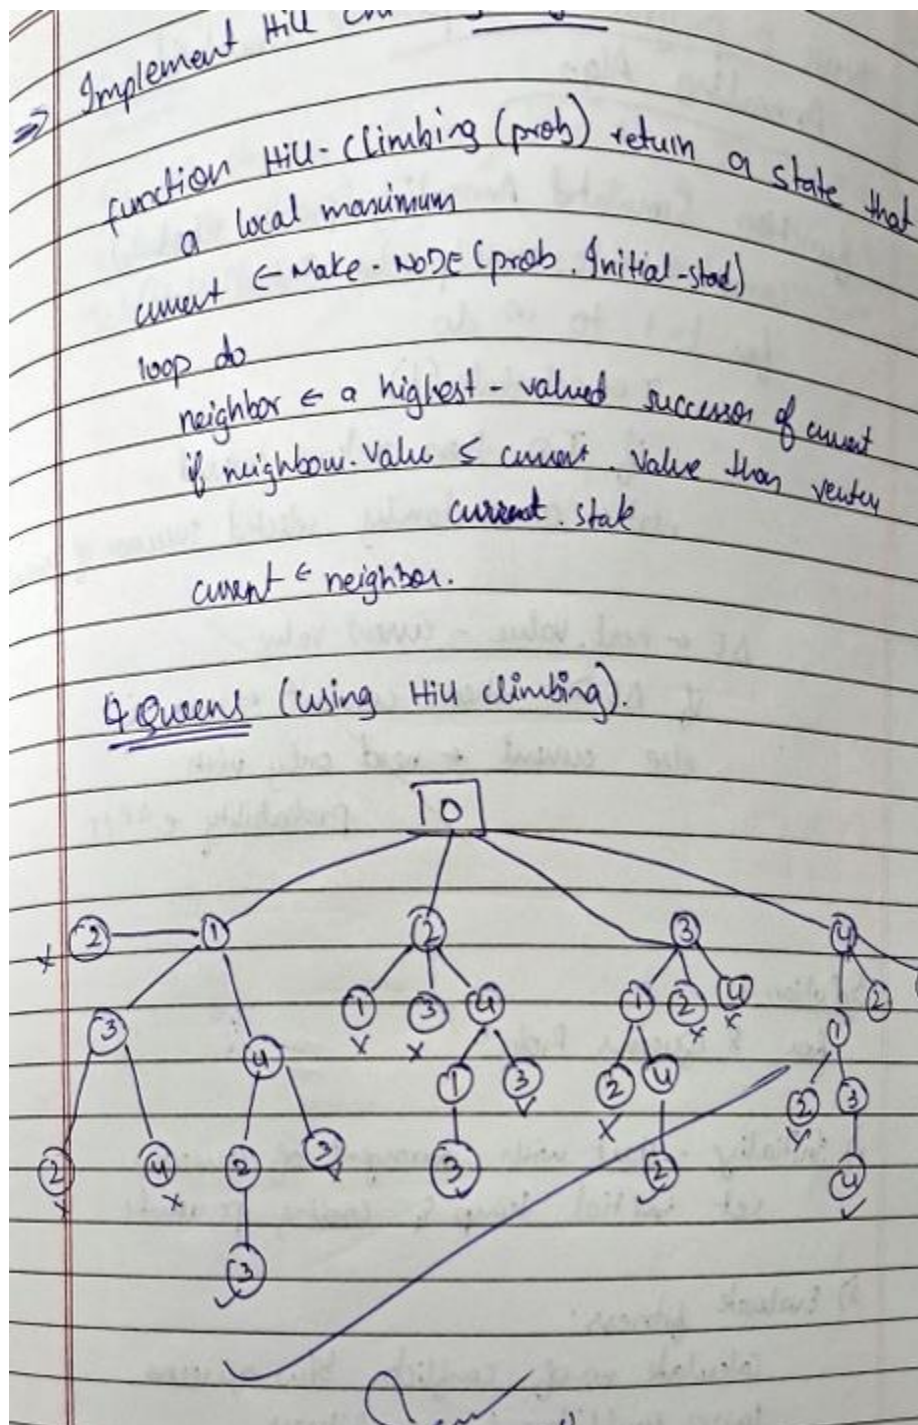 ⇒ Implement Hill
function Hill-Climbing (prob) return a state that
a local maximum
current ← Make-NODE (prob. Initial-stad)
loop do
neighbor ← a highest-valued successor of current
if neighbour. Value ≤ current. Value than
current. state
current ← neighbor.
4 Queens (using Hill climbing).
0
2 1 2 3 4
1 3 4 1 2 4 1 2
3 4 1 3 2 4 2 3
2 4 2 3 3 2 4
3